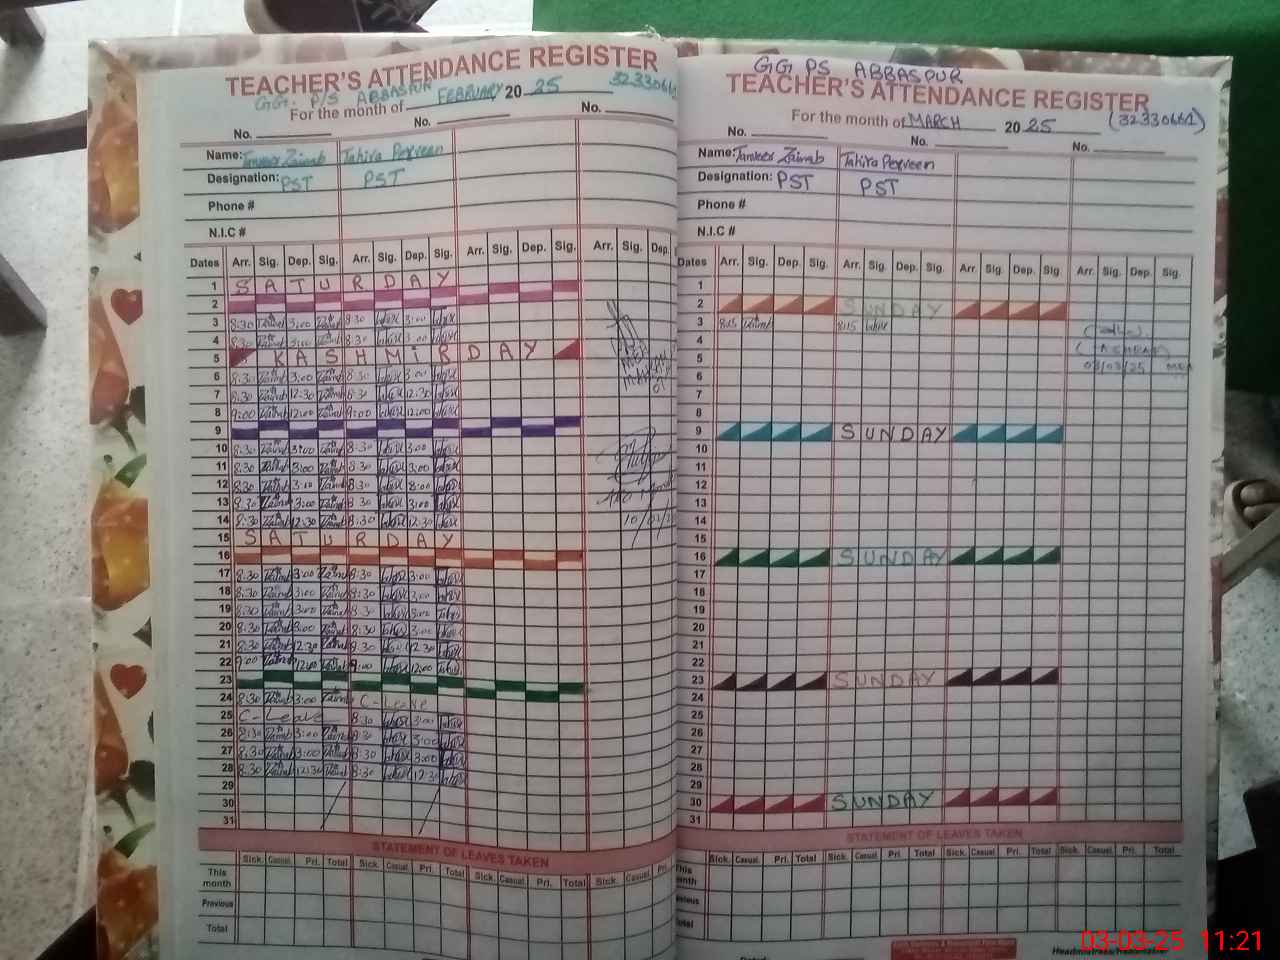 TEACHER'S ATTENDANCE REGISTER
GG. P/S ABBASPUR
For the month of FEBRUARY 20 25
No. No. No.
Name: Tanveer Zainab Tahira Perveen
Designation: PST PST
Phone #
N.I.C #
Dates Arr. Sig. Dep. Sig. Arr. Sig. Dep. Sig. Arr. Sig. Dep. Sig. Arr. Sig. Dep.
1 SATURDAY
2
3 8:30 3:00 8:30 3:00
4 8:30 3:00 8:30 3:00
5 KASHMIR DAY
6 8:30 3:00 8:30 3:00
7 8:30 12:30 8:30 12:30
8 9:00 12:00 9:00 12:00
9
10 8:30 3:00 8:30 3:00
11 8:30 3:00 8:30 3:00
12 8:30 3:00 8:30
13 8:30 3:00 8:30 3:00
14 8:30 12:30 8:30 12:30
15 SATURDAY
16
17 8:30 3:00 8:30 3:00
18 8:30 3:00 8:30 3:00
19 8:30 3:00 8:30 3:00
20 8:30 3:00 8:30 3:00
21 8:30 12:30 8:30 12:30
22 9:00 12:00 9:00 12:00
23
24 8:30 3:00 C-Leave
25 C-Leave 8:30 3:00
26 8:30 3:00 8:30 3:00
27 8:30 3:00 8:30 3:00
28 8:30 12:30 8:30 12:30
29
30
31
STATEMENT OF LEAVES TAKEN
Sick. Casual. Pri. Total Sick. Casual. Pri. Total Sick. Casual. Pri. Total Sick. Casual.
This month
Previous
Total
GGPS ABBASPUR
TEACHER'S ATTENDANCE REGISTER
For the month of MARCH 20 25 (32330661)
No. No. No.
Name: Tanveer Zainab Tahira Perveen
Designation: PST PST
Phone #
N.I.C #
Dates Arr. Sig. Dep. Sig. Arr. Sig. Dep. Sig. Arr. Sig. Dep. Sig. Arr. Sig. Dep. Sig.
1
2 SUNDAY
3 8:15 8:15
4
5
03/03/25
6
7
8
9 SUNDAY
10
11
12
13
14
15
16 SUNDAY
17
18
19
20
21
22
23 SUNDAY
24
25
26
27
28
29
30 SUNDAY
31
STATEMENT OF LEAVES TAKEN
Sick. Casual. Pri. Total Sick. Casual. Pri. Total Sick. Casual. Pri. Total Sick. Casual. Pri. Total
This month
Total
Headmistress/Headmaster
03-03-25 11:21